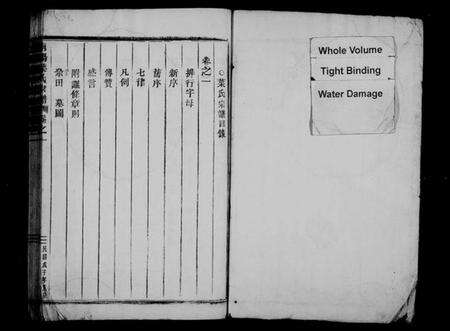 葉氏宗譜目錄
卷之一
排行字母
新序
舊序
七律
凡例
傳贊
終言
附議修章則
祭田 墓圖
Whole Volume
Tight Binding
Water Damage